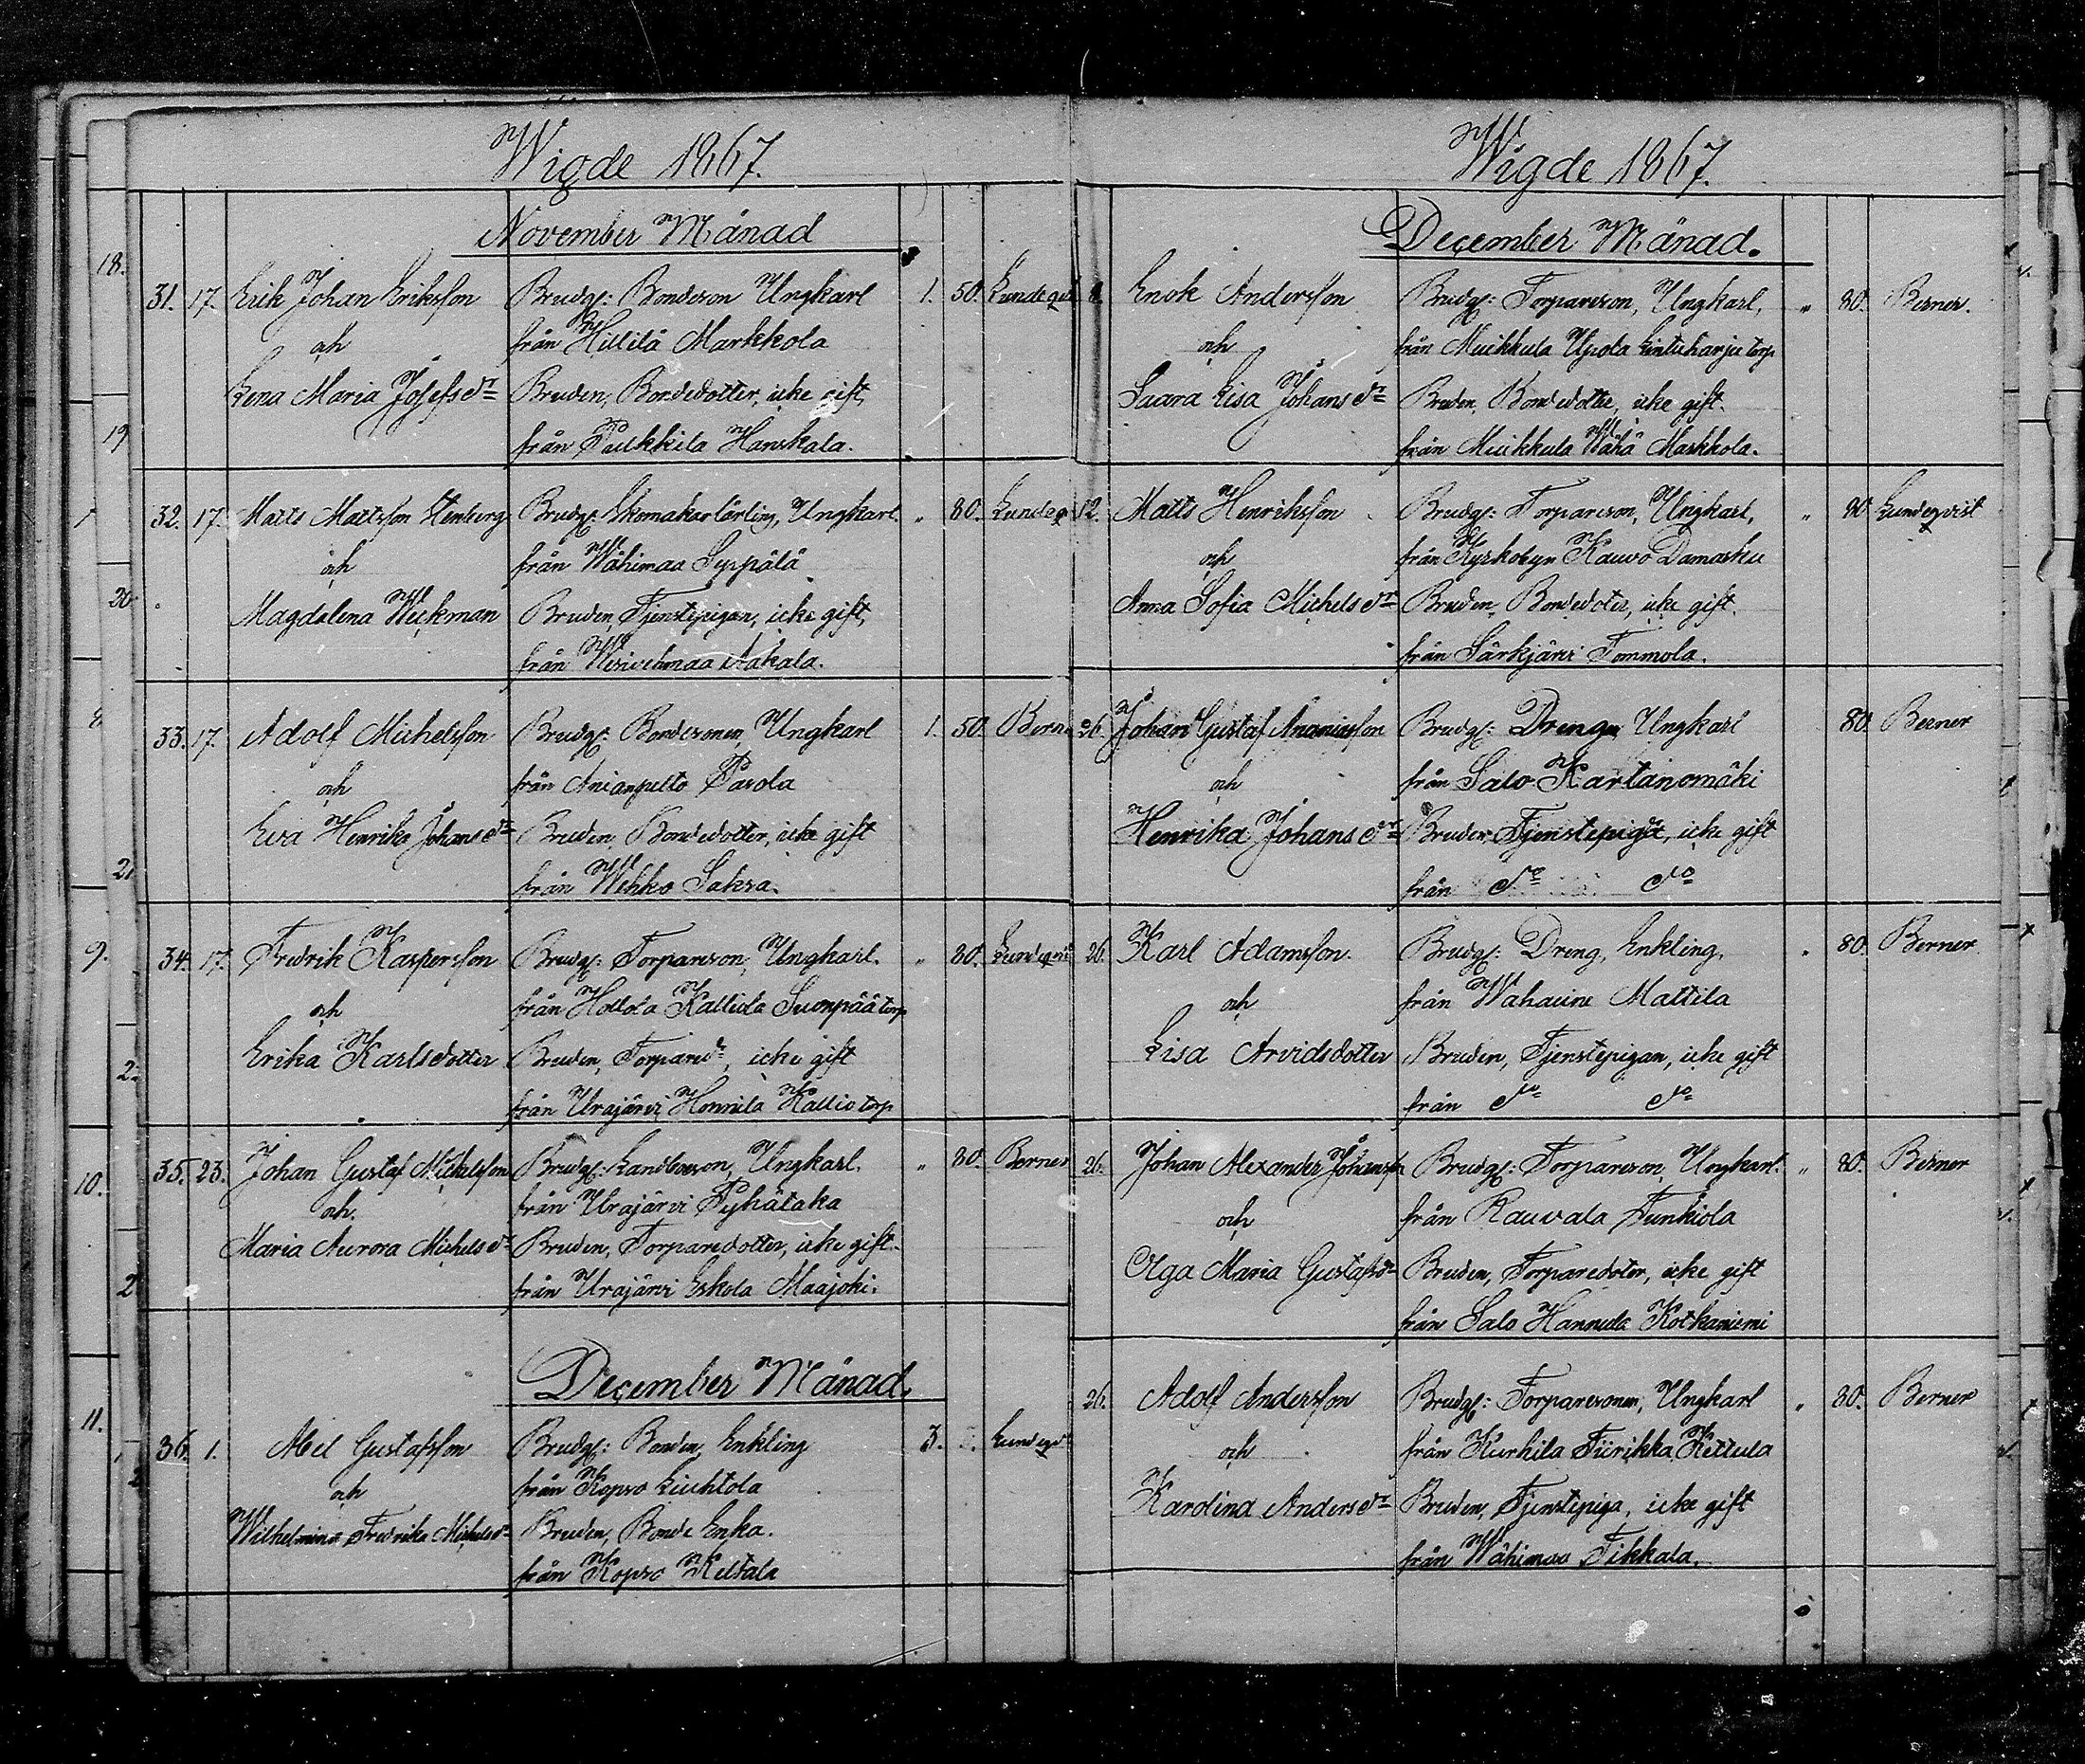 Wigde 1867.
November Månad
31. 17. Erik Johan Eriksson Brudg: Bondeson Ungkarl 1. 50. Lundeqvi
och från Hillilä Markkola
Lena Maria Josefsdr Bruden, Bondedotter, icke gift,
från Pulkkila Hanskala.
32. 17. Matts Mattsson Stenberg Brudg: Skomakarlärling, Ungkarl. " 80. Lundeq
och från Wähimaa Seppälä
Magdalena Wickman Bruden, Tjenstepigan, icke gift,
från Wesivehmaa Aakala.
33. 17. Adolf Michelsson Brudg: Bondesonen, Ungkarl 1. 50. Berne
och från Anianpelto Pasola
Eva Henrika Johansdr Bruden, Bondedotter, icke gift
från Wehko Saksa.
34. 17. Fredrik Kaspersson Brudg: Torpareson, Ungkarl. " 80. Lundeqvi
och från Hollola Kalliola Suonpää torp
Erika Karlsdotter Bruden, Torpared:, icke gift
från Urajärvi Honnila Kallio torp
35. 23. Johan Gustaf Michelsson Brudg: Landboson, Ungkarl. " 80. Berner
och från Urajärvi Pyhätaka
Maria Aurora Michelsdr Bruden, Torparedotter, icke gift.
från Urajärvi Eskola Maajoki.
December Månad.
36. 1. Abel Gustafsson Brudg: Bonden, Enkling 3. Lundeqv
och från Kopso Liuhtola
Wilhelmina Fredrika Michelsdr Bruden, Bonde Enka.
från Kopso Keltala
Wigde 1867.
December Månad.
Enok Andersson Brudg: Torpareson, Ungkarl, " 80. Berner.
och från Muikkula Upola Lintuharju torp
Saara Lisa Johansdr Bruden, Bondedotter, icke gift.
från Muikkula Wähä Markkola.
12. Matts Henriksson Brudg: Torpareson, Ungkarl, " 80 Lundeqvist
och från Kyrkobyn Kauvo Damasku
Anna Sofia Michelsdr Bruden, Bondedoter, icke gift.
från Särkjärvi Tommola.
26. Johan Gustaf Ananiasson Brudg: Dreng, Ungkarl 80. Berner
och från Salo Kartanomäki
Henrika Johansdr Bruden Tjenstepiga, icke gift
från do do
26. Karl Adamsson Brudg: Dreng, Enkling, " 80. Berner
och från Wahause Mattila
Lisa Arvidsdotter Bruden, Tjenstepigan, icke gift
från do do
26. Johan Alexander Johansson Brudg: Torpareson, Ungkarl. " 80. Berner
och från Kauvala Junkiola
Olga Maria Gustafsdr Bruden, Torparedoter, icke gift
från Salo Hannula Kotkaniemi
26. Adolf Andersson Brudg: Torparesonen, Ungkarl " 80. Berner
och från Kurhila Tiirikka Kettula
Karolina Andersdr Bruden, Tjenstepiga, icke gift
från Wähimaa Tikkala.
18.
19
20
8
9.
10.
11.